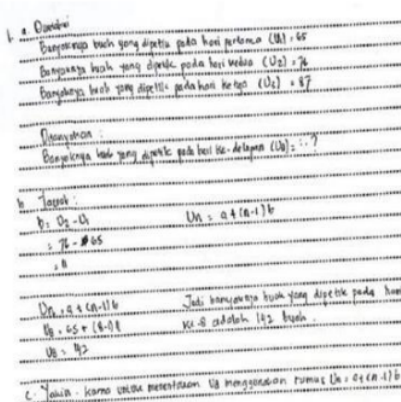 1. a. Diketahui
Banyaknya buah yang dipetik pada hari pertama (U1) = 65
Banyaknya buah yang dipetik pada hari kedua (U2) = 76
Banyaknya buah yang dipetik pada hari ketiga (U3) = 87
Ditanyakan :
Banyaknya buah yang dipetik pada hari ke-delapan (U8) = ..?
b. Jawab :
b = U2 - U1    Un = a + (n-1) b
= 76 - 65
= 11
Un = a + (n-1) b    Jadi banyaknya buah yang dipetik pada hari
U8 = 65 + (8-1) 11    ke-8 adalah 142 buah.
U8 = 142
c. Yakin. karna untuk menentukan U8 menggunakan rumus Un = a + (n-1) b